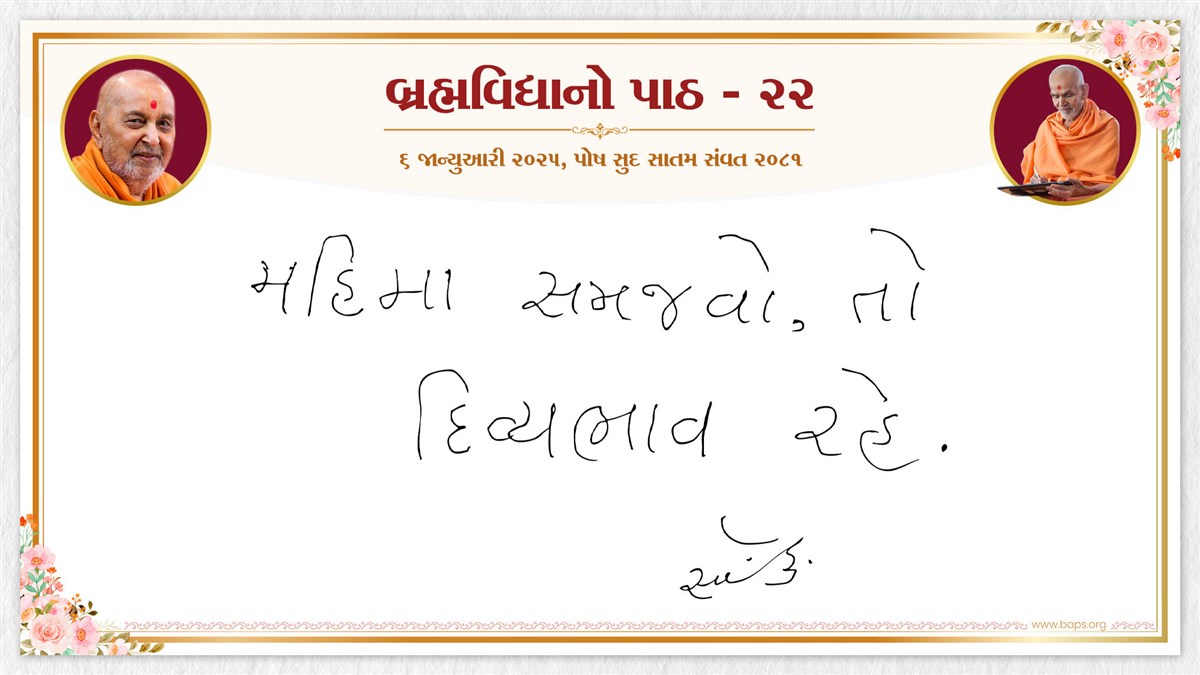 બ્રહ્મવિદ્યાનો પાઠ - ૨૨
૬ જાન્યુઆરી ૨૦૨૫, પોષ સુદ સાતમ સંવત ૨૦૮૧
મહિમા સમજવો, તો
દિવ્યભાવ રહે.
www.baps.org